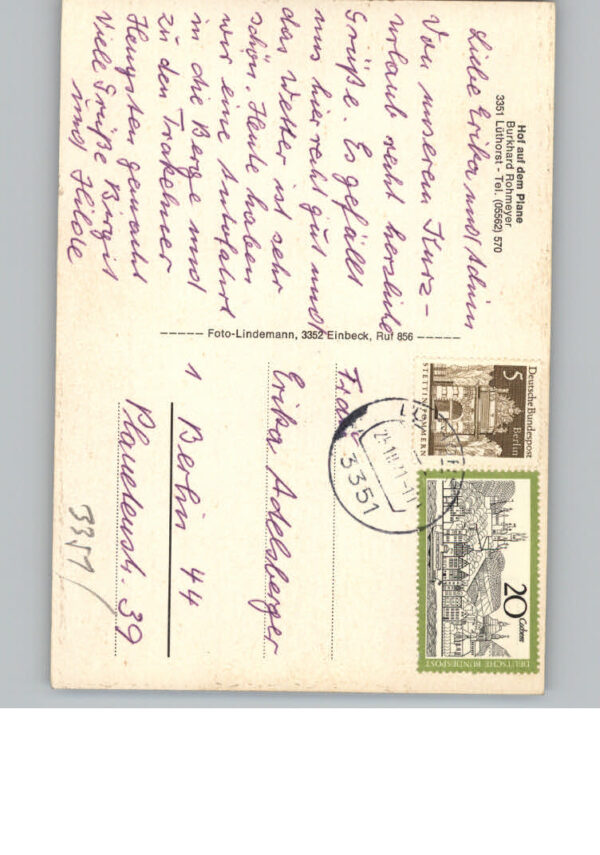 Hof auf dem Plane
Burkhard Rohmeyer
3351 Lüthorst - Tel. (05562) 570
Liebe Erika und Armin
Von unserem Kurz-
urlaub recht herzliche
Grüße. Es gefällt
uns hier recht gut und
das Wetter ist sehr
schön. Heute haben
wir eine Autofahrt
in die Berge und
zu den Trakehner
Hengsten gemacht
Viele Grüße Birgit
und Hilde
Foto-Lindemann, 3352 Einbeck, Ruf 856
Deutsche Bundespost
Berlin
5
STETTIN/POMMERN
20
Cochem
DEUTSCHE BUNDESPOST
3351
Frau
Erika Adelsberger
1 Berlin 44
Planetenstr. 39
3351